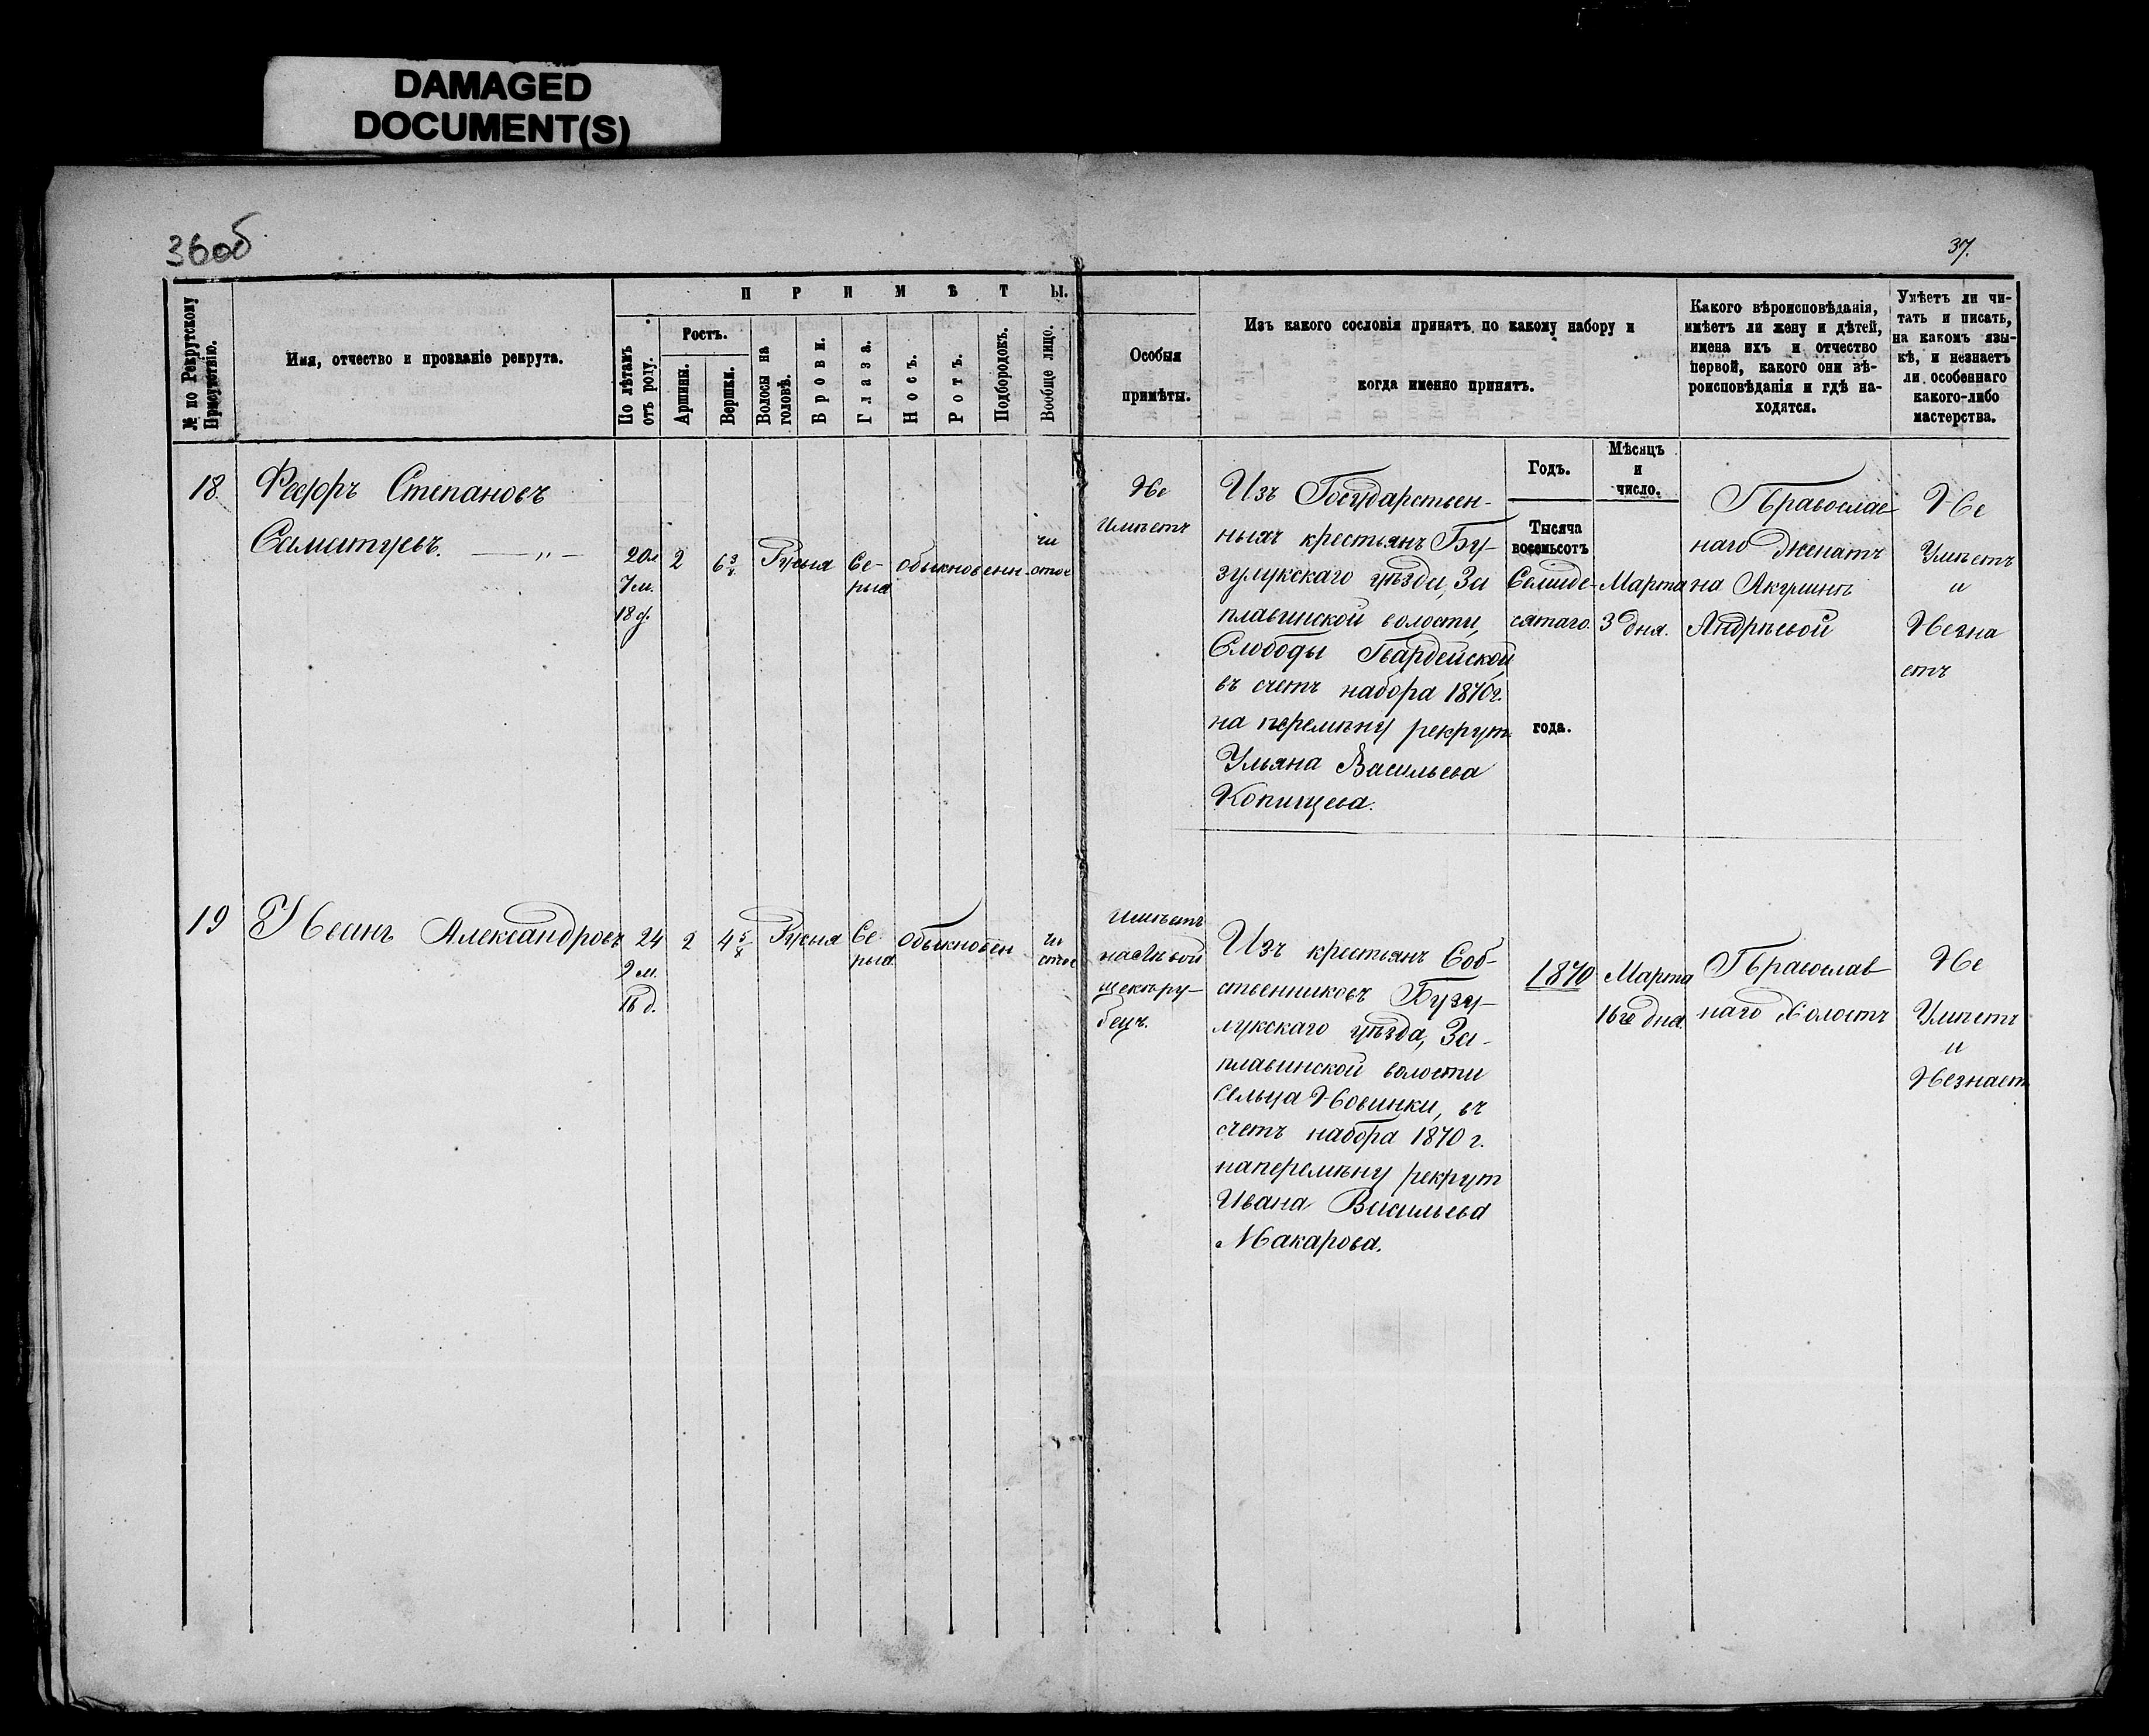 DAMAGED
DOCUMENT(S)
36об
37.
№ по Рекрутскому
Присутствію.
Имя, отчество и прозваніе рекрута.
ПРИМѢТЫ.
По лѣтамъ
отъ роду.
Ростъ.
Аршины.
Вершки.
Волосы на
головѣ.
Брови.
Глаза.
Носъ.
Ротъ.
Подбородокъ.
Вообще лицо.
Особыя
примѣты.
Изъ какого сословія принятъ, по какому набору и
когда именно принятъ.
Какого вѣроисповѣданія,
имѣетъ ли жену и дѣтей,
имена ихъ и отчество
первой, какого они вѣ-
роисповѣданія и гдѣ на-
ходятся.
Умѣетъ ли чи-
тать и писать,
на какомъ язы-
кѣ, и незнаетъ
ли особеннаго
какого-либо
мастерства.
Годъ.
Мѣсяцъ
и
число.
18
Федоръ Степановъ
Саматуевъ.
20л
7м.
18д.
2
6 3/4
Русыя
Се-
рыя
обыкновенн.
чи
стое
Не
имѣетъ
Изъ Государствен-
ныхъ крестьянъ Бу-
зулукскаго уѣзда, За
плавинской волости,
Слободы Гвардейской,
въ счетъ набора 1870г.
на перемѣну рекрут.
Ульяна Васильева
Копищева.
Тысяча
восемьсотъ
Семиде-
сятаго
года.
Марта
3 дня.
Православ
наго Женатъ
на Акулинѣ
Андрѣевой
Не
Умѣетъ
и
Незна
етъ
19
Иванъ Александровъ
24
2 м.
16 д.
2
4 5/8
Русыя
Се
рыя
Обыкновен
чи
стое
Имѣетъ
на лѣвой
щекѣ ру-
бецъ.
Изъ крестьянъ Соб-
ственниковъ Бузу-
лукскаго уѣзда, За-
плавинской волости
сельца Новинки, въ
счетъ набора 1870 г.
наперемѣну рекрут
Ивана Васильева
Макарова.
1870
Марта
16го дня.
Православ
наго Холостъ
Не
Умѣетъ
и
Незнает